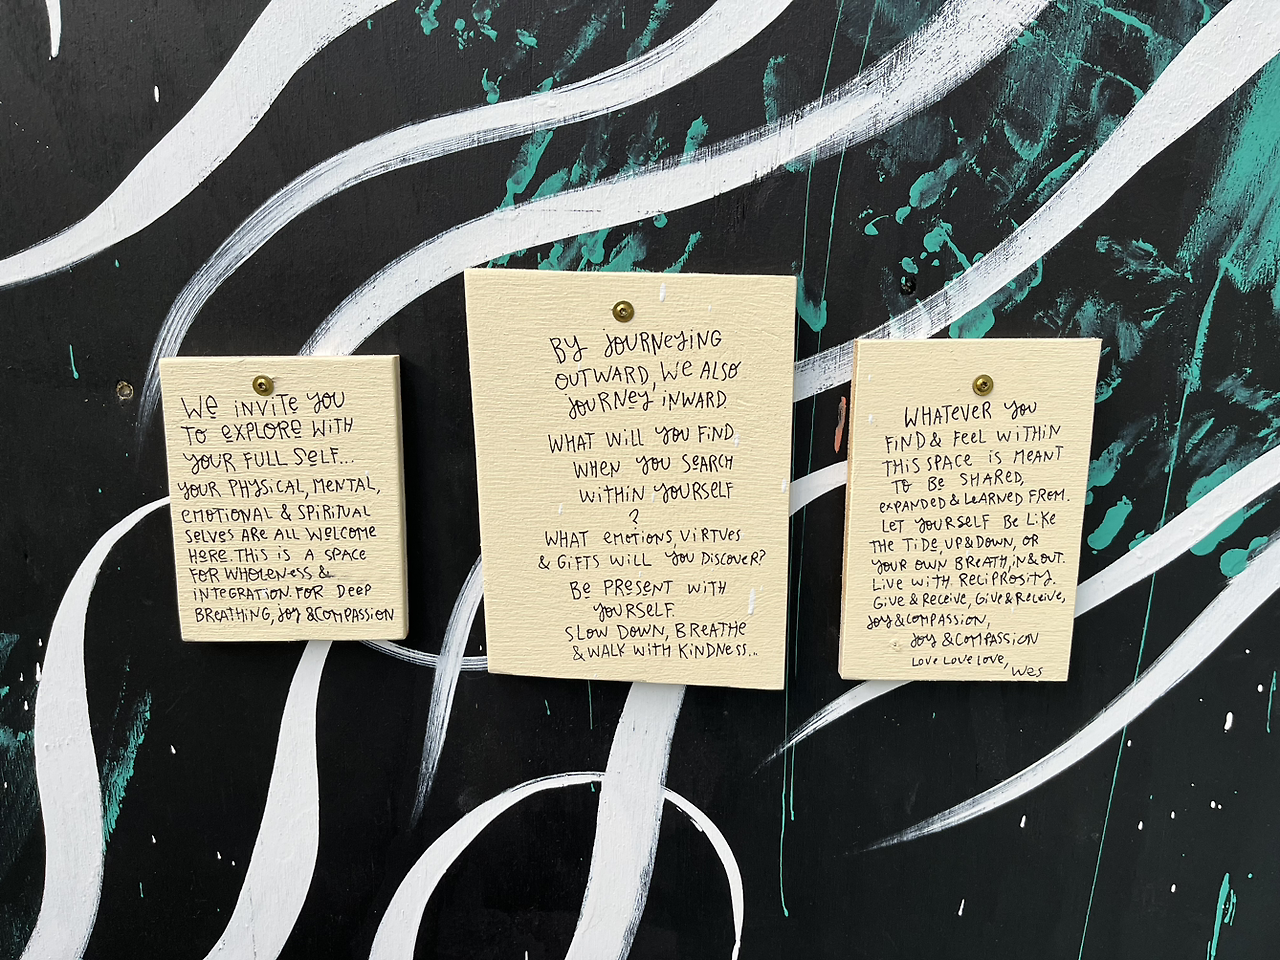 WE INVITE YOU
TO EXPLORE WITH
YOUR FULL SELF...
YOUR PHYSICAL, MENTAL,
EMOTIONAL & SPIRITUAL
SELVES ARE ALL WELCOME
HERE. THIS IS A SPACE
FOR WHOLENESS &
INTEGRATION. FOR DEEP
BREATHING, JOY & COMPASSION
BY JOURNEYING
OUTWARD, WE ALSO
JOURNEY INWARD.
WHAT WILL YOU FIND,
WHEN YOU SEARCH
WITHIN YOURSELF
?
WHAT EMOTIONS, VIRTUES
& GIFTS WILL YOU DISCOVER?
BE PRESENT WITH
YOURSELF.
SLOW DOWN, BREATHE
& WALK WITH KINDNESS...
WHATEVER YOU
FIND & FEEL WITHIN
THIS SPACE IS MEANT
TO BE SHARED,
EXPANDED & LEARNED FROM.
LET YOURSELF BE LIKE
THE TIDE, UP & DOWN, OR
YOUR OWN BREATH, IN & OUT.
LIVE WITH RECIPROSITY.
GIVE & RECEIVE, GIVE & RECEIVE,
JOY & COMPASSION,
JOY & COMPASSION
LOVE LOVE LOVE,
WES